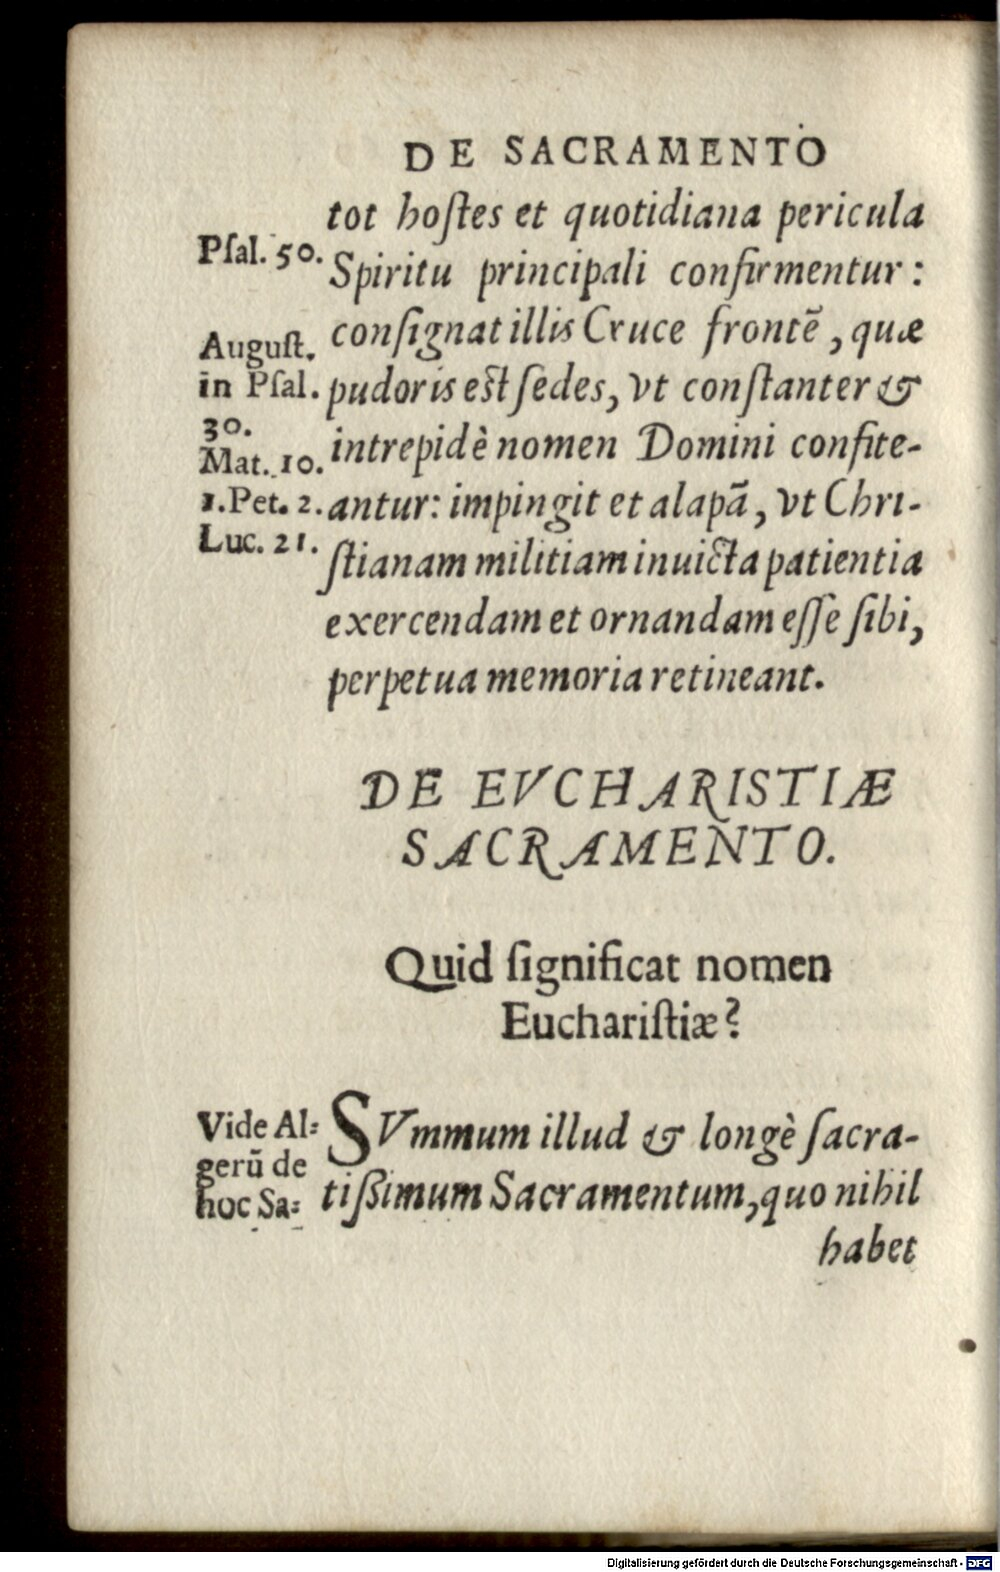 DE SACRAMENTO
tot hoſtes et quotidiana pericula
Pſal. 50.
Spiritu principali confirmentur:
conſignat illis Cruce frontē, quæ
Auguſt.
in Pſal.
30.
pudoris eſt ſedes, vt conſtanter &
intrepidè nomen Domini confite-
Mat. 10.
1. Pet. 2.
antur: impingit et alapā, vt Chri-
Luc. 21.
ſtianam militiam inuicta patientia
exercendam et ornandam eſſe ſibi,
perpetua memoria retineant.
DE EVCHARISTIÆ
SACRAMENTO.
Quid ſignificat nomen
Euchariſtiæ?
Vide Al-
gerū de
hoc Sa-
SVmmum illud & longè ſacra-
tißimum Sacramentum, quo nihil
habet
Digitalisierung gefördert durch die Deutsche Forschungsgemeinschaft - DFG